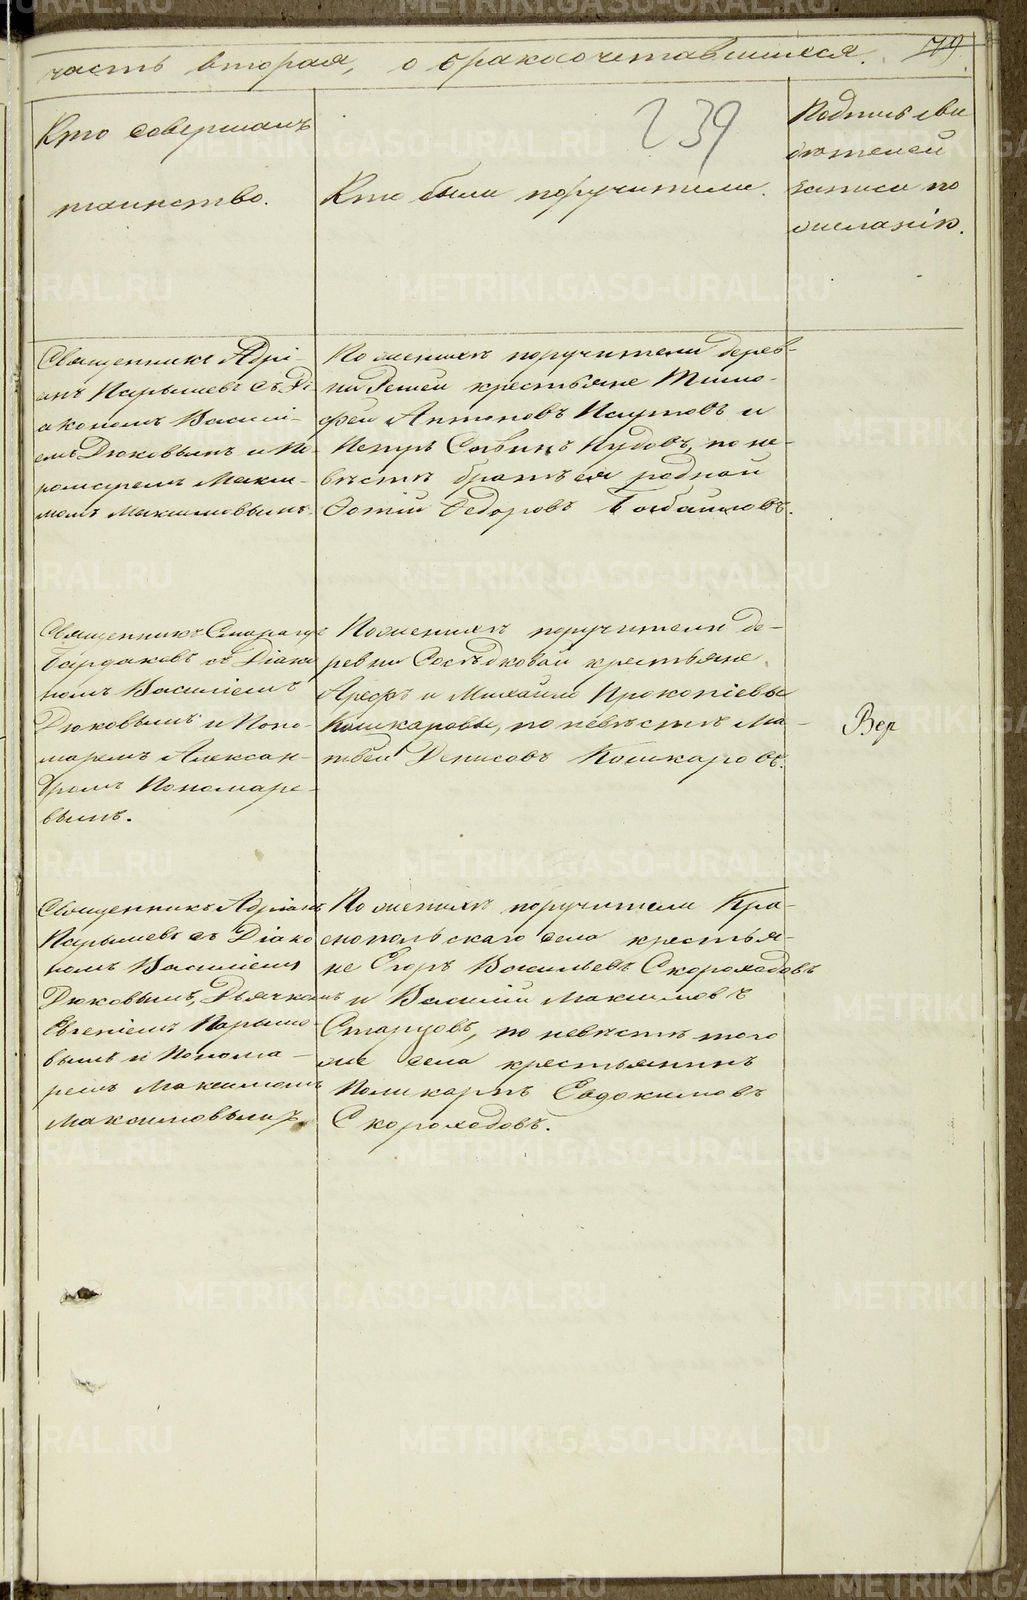 часть вторая, о бракосочетавшихся. 79.
239
Кто совершалъ
таинство.
Кто были поручители.
Подпись сви
дѣтелей
записи по
желанію.
Священникъ Адрі-
анъ Парышевъ съ Ді
акономъ Василі-
емъ Дюковымъ и По-
номаремъ Макси-
момъ Максимовымъ.
По женихѣ поручители дерев-
ни крестьяне Тимо-
фей Антоновъ Паутовъ и
Петръ Савинъ Нудовъ, по не-
вѣстѣ братъ ея родной
Фотій Ѳедоровъ
Священникъ Смарагдъ
Бардаковъ съ Діако
номъ Василіемъ
Дюковымъ и Поно-
маремъ Алексан-
дромъ Пономаре-
вымъ.
По женихѣ поручители де-
ревни Сосѣдковой крестьяне
Арефъ и Михаило Прокопіевы
Кошкаровы, по невѣстѣ Ма-
твѣй Денисовъ Кошкаровъ.
Вер
Священникъ Адріанъ
Парышевъ съ Діако
номъ Василіемъ
Дюковымъ, Дьячкомъ
Евгеніемъ Парыше-
вымъ и Понома-
ремъ Максимомъ
Максимовымъ.
По женихѣ поручители Кра-
снопольскаго села крестья-
не Егоръ Васильевъ Скороходовъ
и Василій Максимовъ
Старцовъ, по невѣстѣ того
же села крестьянинъ
Поликарпъ Евдокимовъ
Скороходовъ.
METRIKI.GASO-URAL.RU